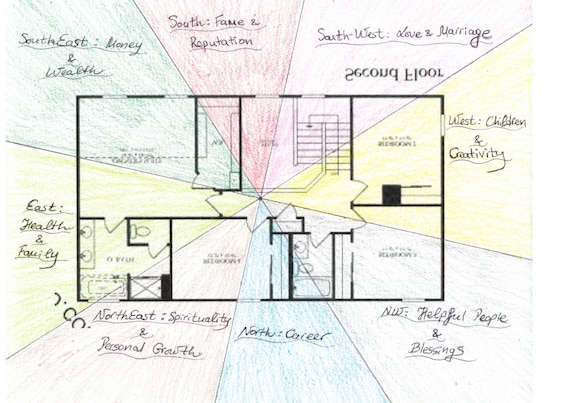 South: Fame &
Reputation
SouthEast: Money
&
Wealth
South-West: Love & Marriage
Second Floor
West: Children
&
Creativity
BEDROOM 2
East:
Health
&
Family
O. BATH
BEDROOM 4
BEDROOM 3
NorthEast: Spirituality
&
Personal Growth
North: Career
NW: Helpful People
&
Blessings